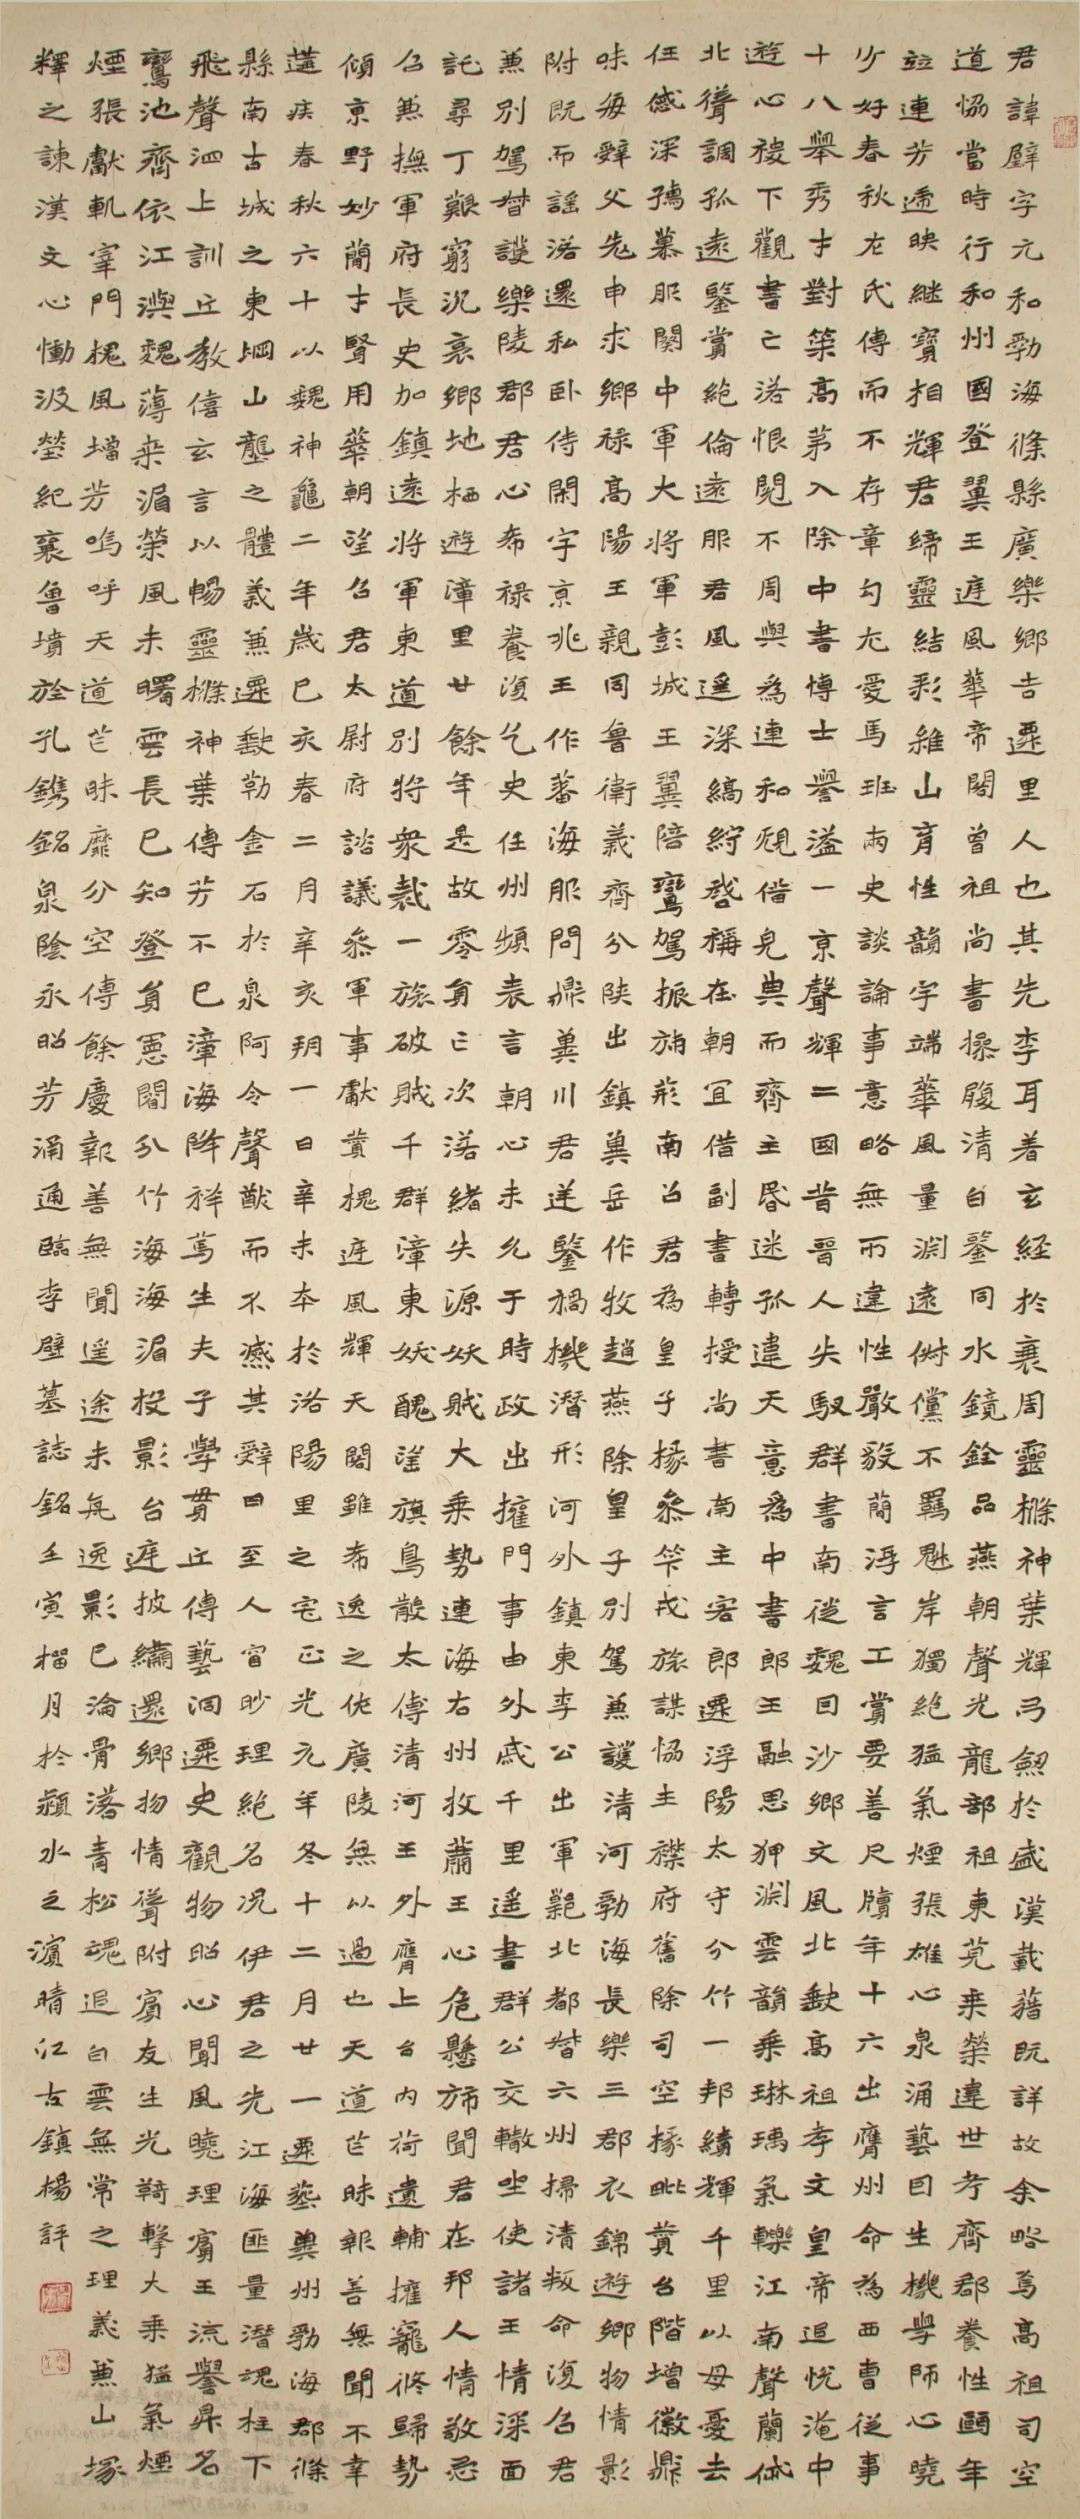 君諱璧字元和勃海條縣廣樂鄉吉遷里人也其先李耳著玄經於衰周靈樤神葉輝弓劒於盛漢載蕕既詳故余略焉高祖司空
道協當時行和州國登翼王庭風華帝閣曾祖尚書操履清白鑒同水鏡銓品燕朝聲光龍部祖東莞乘榮違世考齊郡養性頤年
竝連芳遞映繼寶相輝君締靈結彩維山育性韻宇端華風量淵遠倜儻不羈魁岸獨絕猛氣煙張雄心泉涌藝因生機學師心曉
少好春秋左氏傳而不存章勾尤愛馬班兩史談論事意略無所違性嚴毅簡浮言工賞要善尺牘年十六出膺州命為西曹從事
十八舉秀才對策高第入除中書博士譽溢一京聲輝二國昔晉人失馭群書南徙魏因沙鄉文風北缺高祖孝文皇帝追悅淹中
遊心稷下觀書亡落恨閱不周與為連和規借完典而齊主昏迷孤違天意為中書郎王融思狎淵雲韻乘琳瑀氣轢江南聲蘭岱
北聳調孤遠鑒賞絕倫遠服君風遙深縞紵啓稱在朝宜借副書轉授尚書南主客郎遷浮陽太守分竹一邦績輝千里以母憂去
任慼深孺慕服闋中軍大將軍彭城王翼陪鸞駕振旆荊南召君為皇子掾參筭戎旅謀協主襟府舊除司空掾毗贊台階增徽鼎
味每辭父老申求鄉祿高陽王親同魯衛義齊分陝出鎮冀岳作牧趙燕除皇子別駕兼護清河勃海長樂三郡衣錦遊鄉物情影
附既而謠落還私臥侍閑宇京兆王作蕃海服問鼎冀川君逆鑒禍機潛形河外鎮東李公出軍範北都督六州掃清叛命復召君
兼別駕督護樂陵郡君心希祿養復乞史任州頻表言朝心未允于時政出權門事由外戚千里遙書群公交轍坐使諸王情深面
託尋丁艱窮沉哀鄉地栖遊漳里廿餘年是故零員亡次落緒失源妖賊大乘勢連海右州牧蕭王心危懸旆聞君在邦人情敬忌
召兼撫軍府長史加鎮遠將軍東道別將眾裁一旅破賊千群漳東妖醜望旗鳥散太傅清河王外膺上台內荷遺輔權寵攸歸勢
傾京野妙簡才賢用華朝望召君太尉府諮議參軍事獻贊槐庭風輝天閣雖希逸之佐廣陵無以過也天道芒昧報善無聞不幸
薖疾春秋六十以魏神龜二年歲已亥春二月辛亥朔一日辛未卒於洛陽里之宅正光元年冬十二月廿一遷葬冀州勃海郡條
縣南古城之東堈山壟之體義兼遷缺勒金石於泉阿令聲猷而不滅其辭曰至人窅眇理絕名況伊君之光江海匪量潛魂柱下
飛聲泗上訓丘教僖玄言以暢靈樤神葉傳芳不已漳海降祥篤生夫子學貫丘傳藝洞遷史觀物昭心聞風曉理賓王流譽鼎名
鸞池齊依江澳魏薄來湄榮風未曙雲長已知登員憲閣分竹海海湄投影台庭披繡還鄉物情聳附賓友生光騎擊大乘猛氣煙
煙張獻軌宰門槐風增芳嗚呼天道芒昧靡分空傳餘慶報善無聞遙途未半逸影已淪骨落青松魂追白雲無常之理義兼山塚
釋之諫漢文心慟汲塋紀襄魯墳於孔鐫銘泉陰永昭芳涌通臨李璧墓誌銘壬寅榴月於潁水之濱晴江古鎮楊評